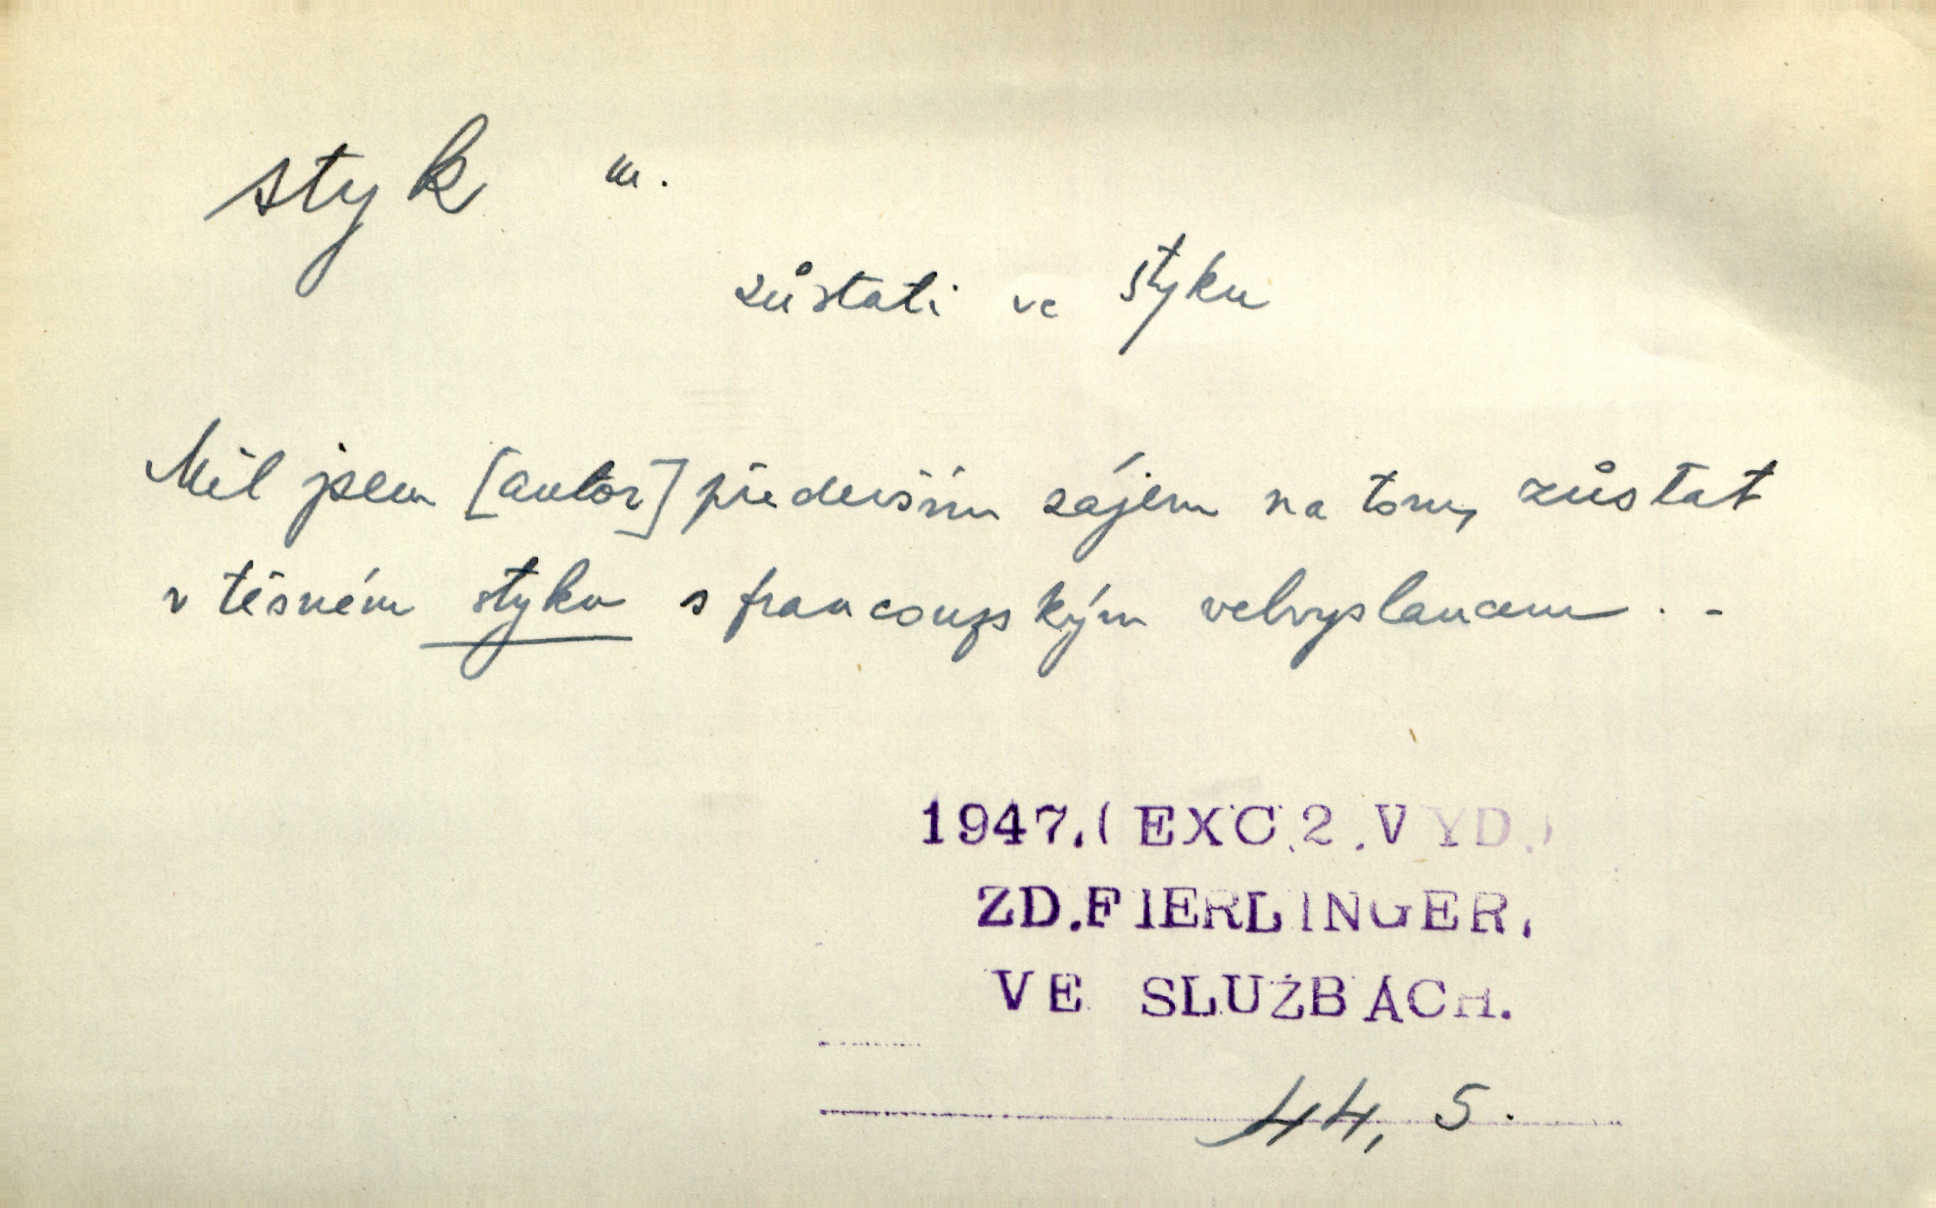 styk m.
zůstati ve styku
Měl jsem [autor] především zájem na tom, zůstat
v těsném styku s francouzským velvyslancem . -
1947.(EXC.2.VYD.)
ZD.FIERLINGER,
VE SLUŽBÁCH.
44, 5.